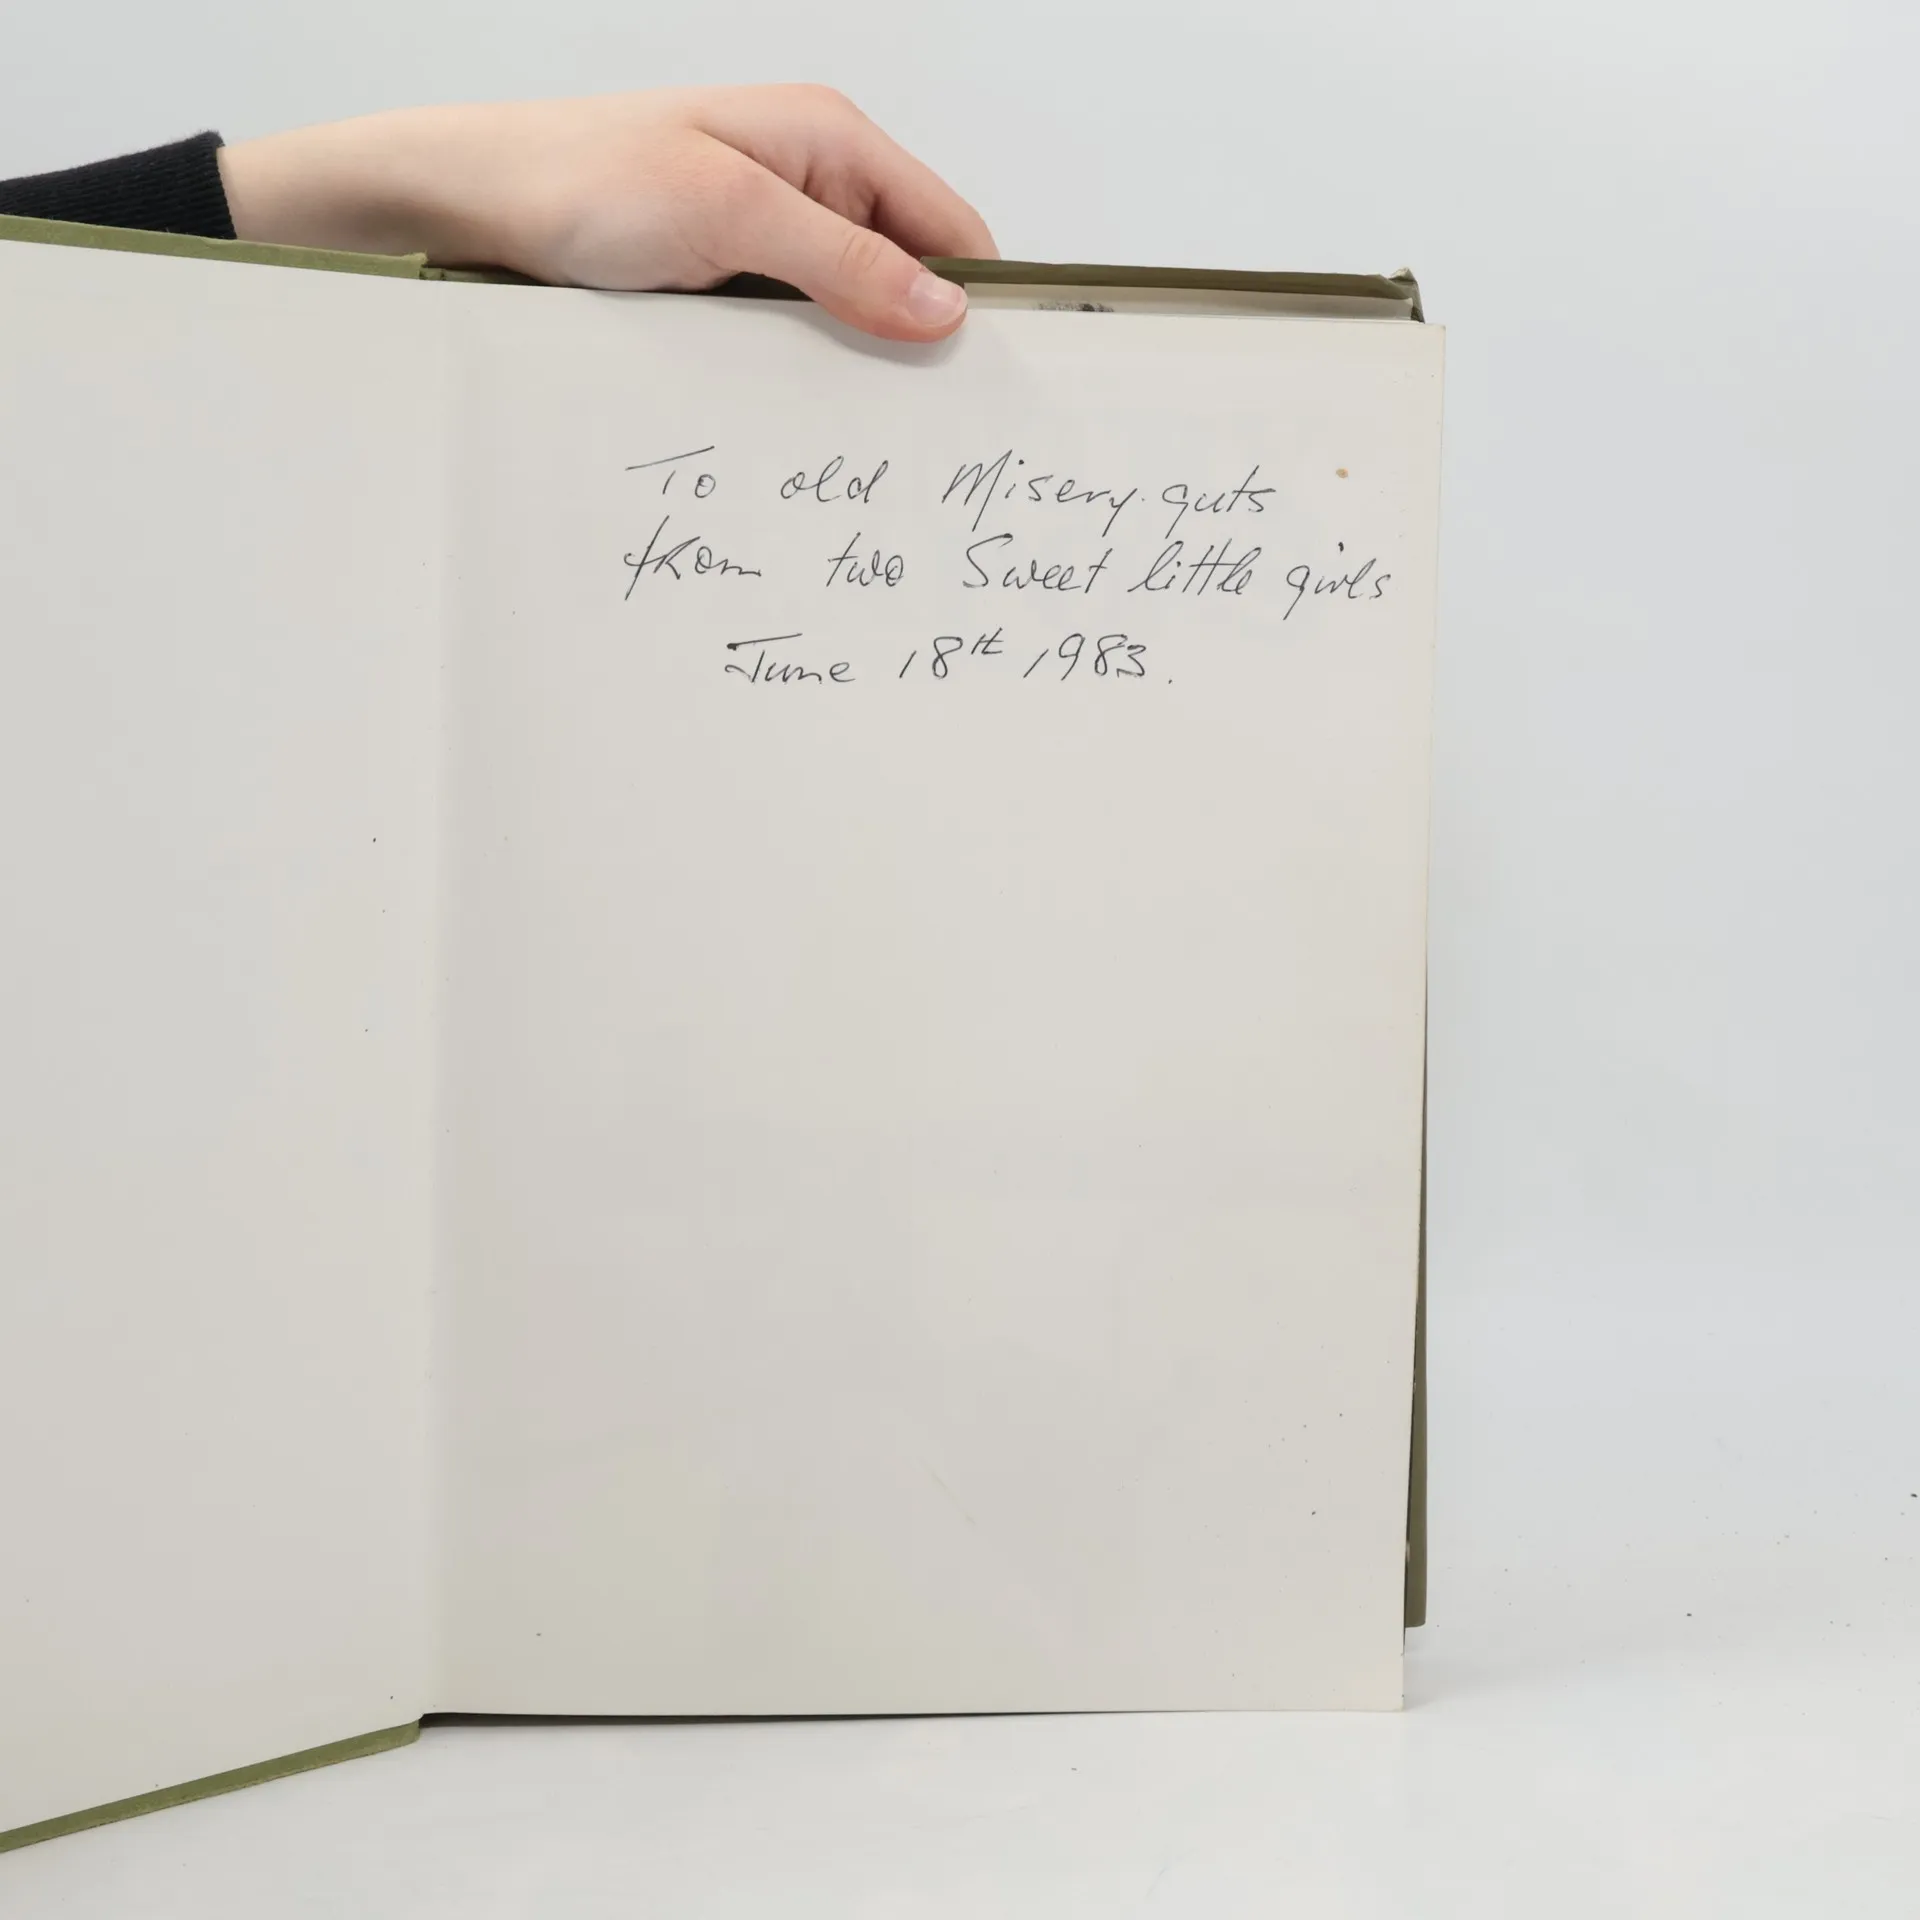 To old Misery.guts
from two Sweet little girls
June 18th 1983.